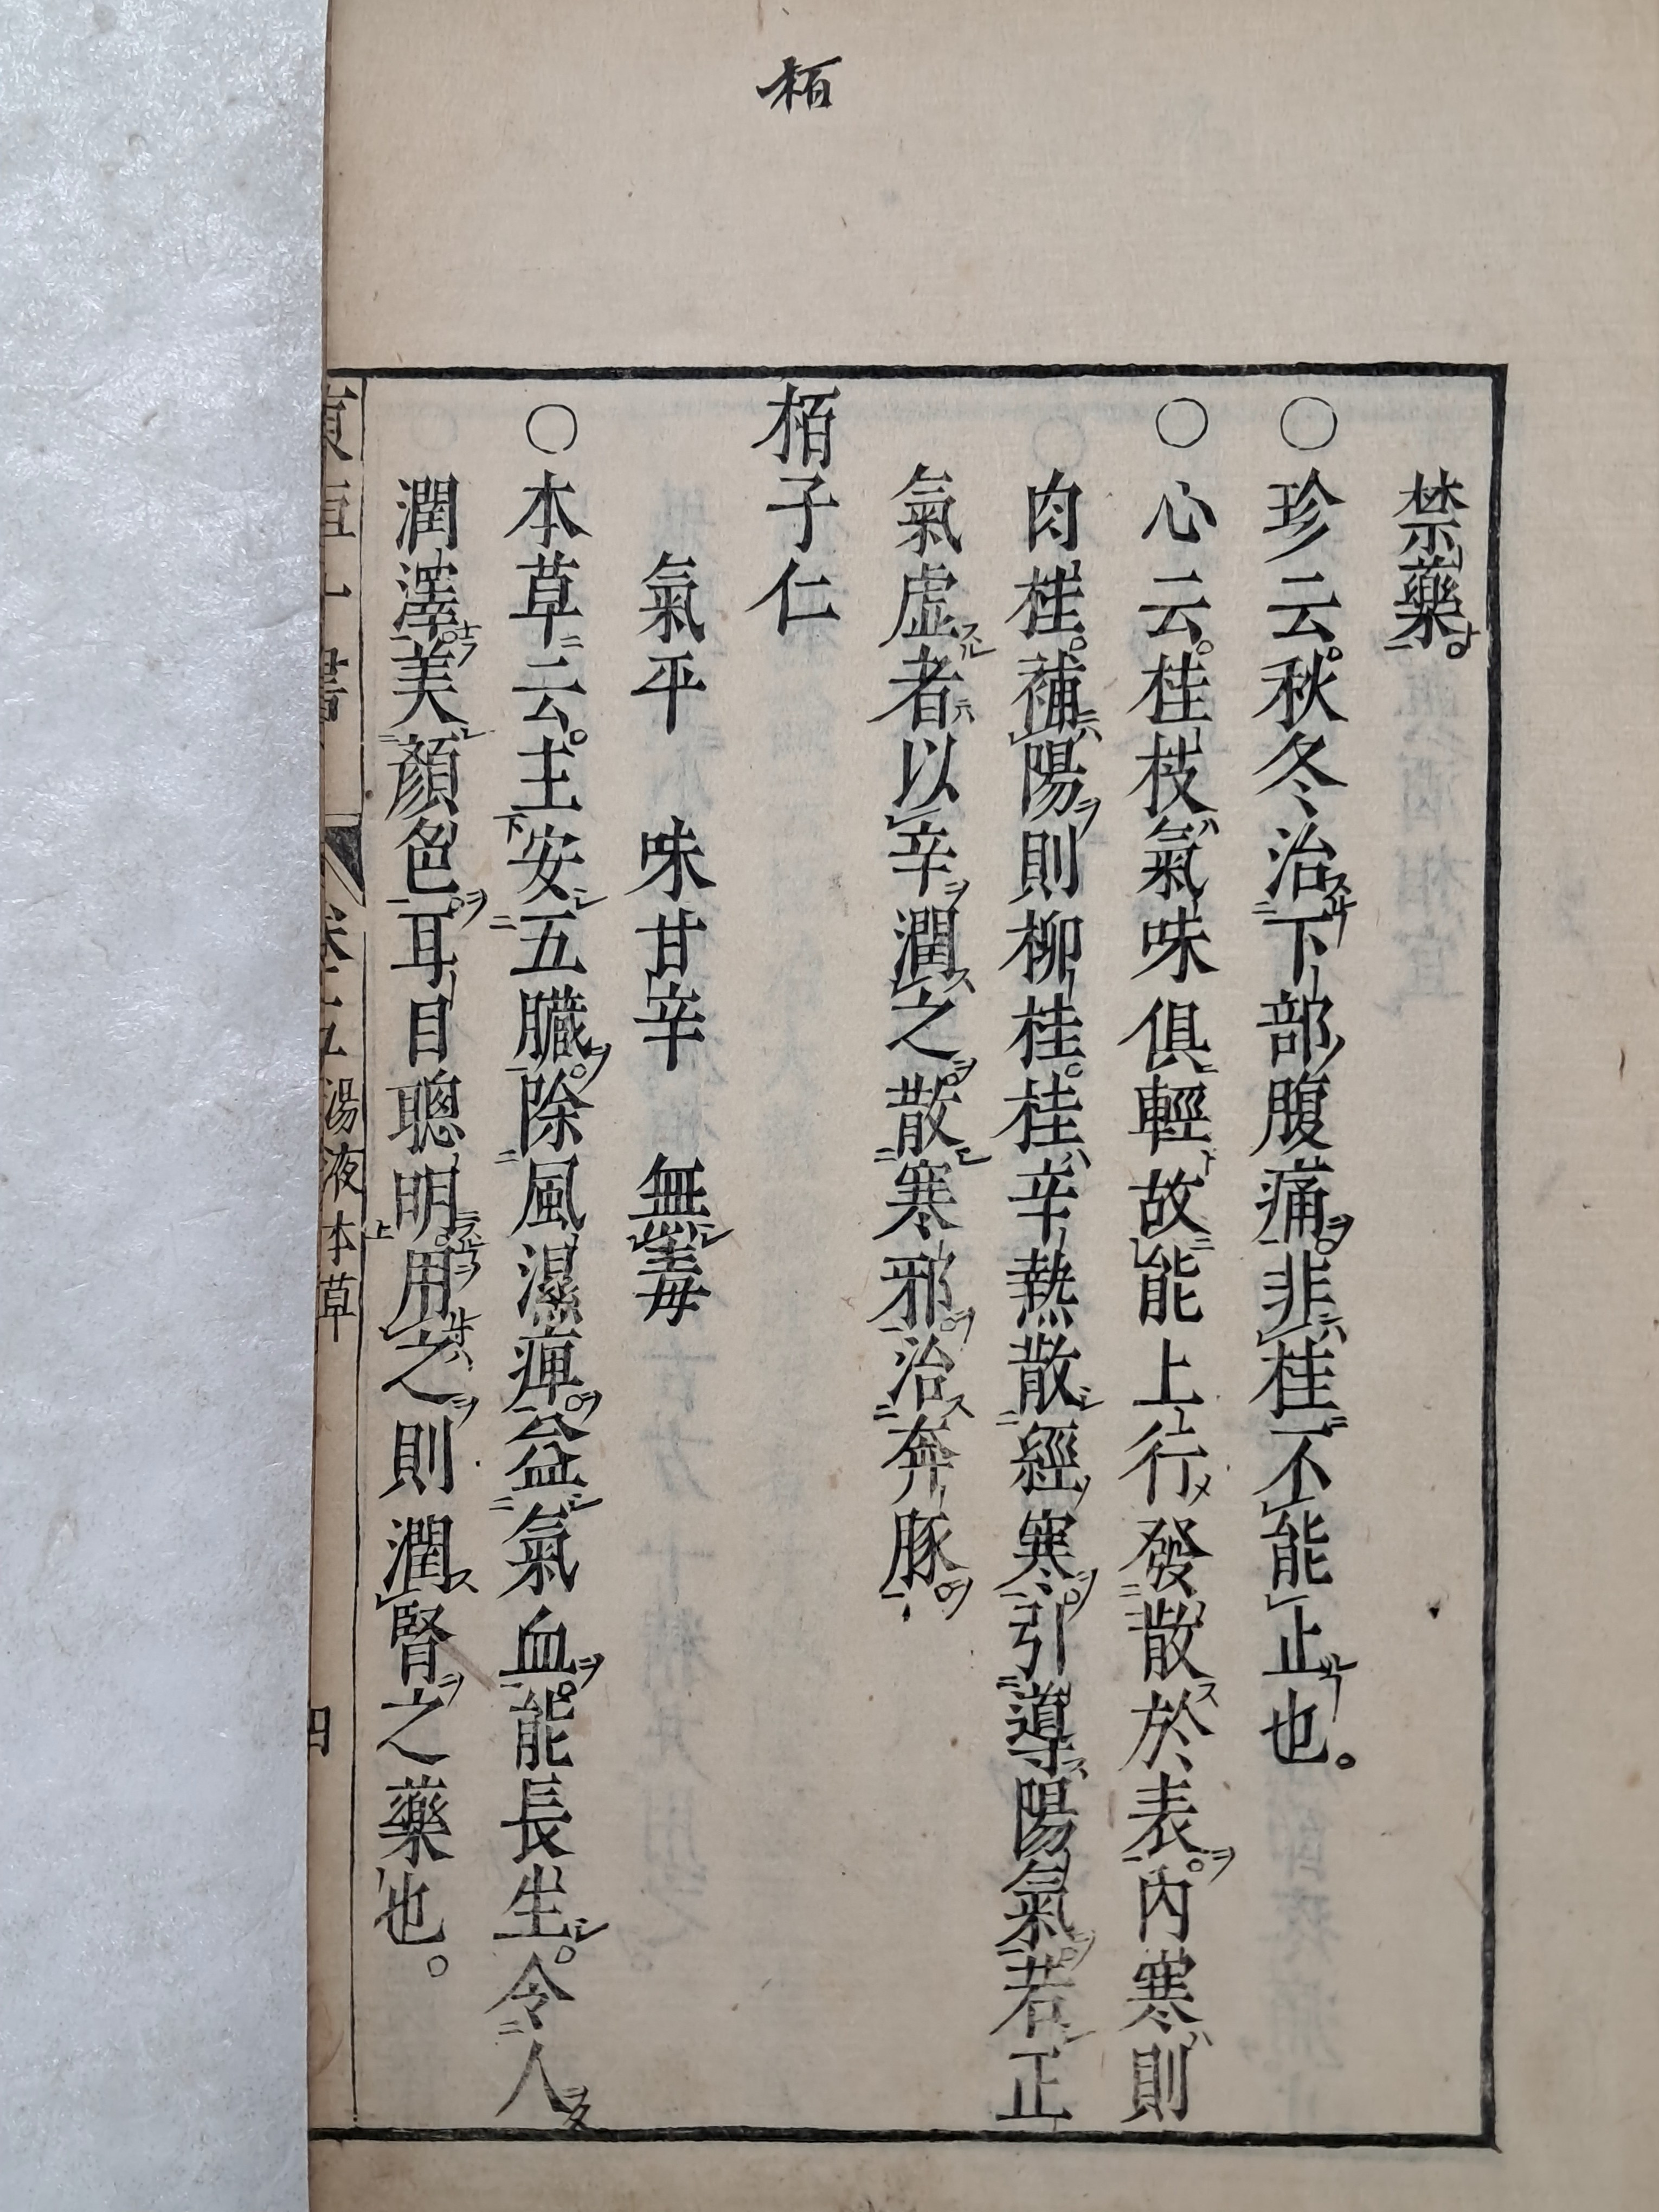 栢
禁藥。
○珍云。秋冬治下部腹痛。非桂不能止也。
○心云。桂枝氣味俱輕故能上行發散於表。內寒則
肉桂。補陽則柳桂。桂辛熱散經寒。引導陽氣。若正
氣虛者以辛潤之。散寒邪。治奔豚。
栢子仁
氣平 味甘辛 無毒
○本草云。主安五臟。除風濕痺。益氣血。能長生。令人
潤澤。美顏色。耳目聰明。用之則潤腎之藥也。
湯液本草